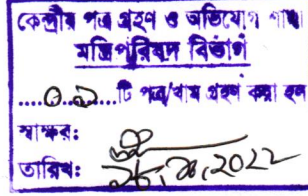 কেন্দ্রীয় পত্র গ্রহণ ও অভিযোগ শাখা
মন্ত্রিপরিষদ বিভাগ
.....০২....টি পত্র/খাম গ্রহণ করা হল
স্বাক্ষর:
তারিখ: 2022